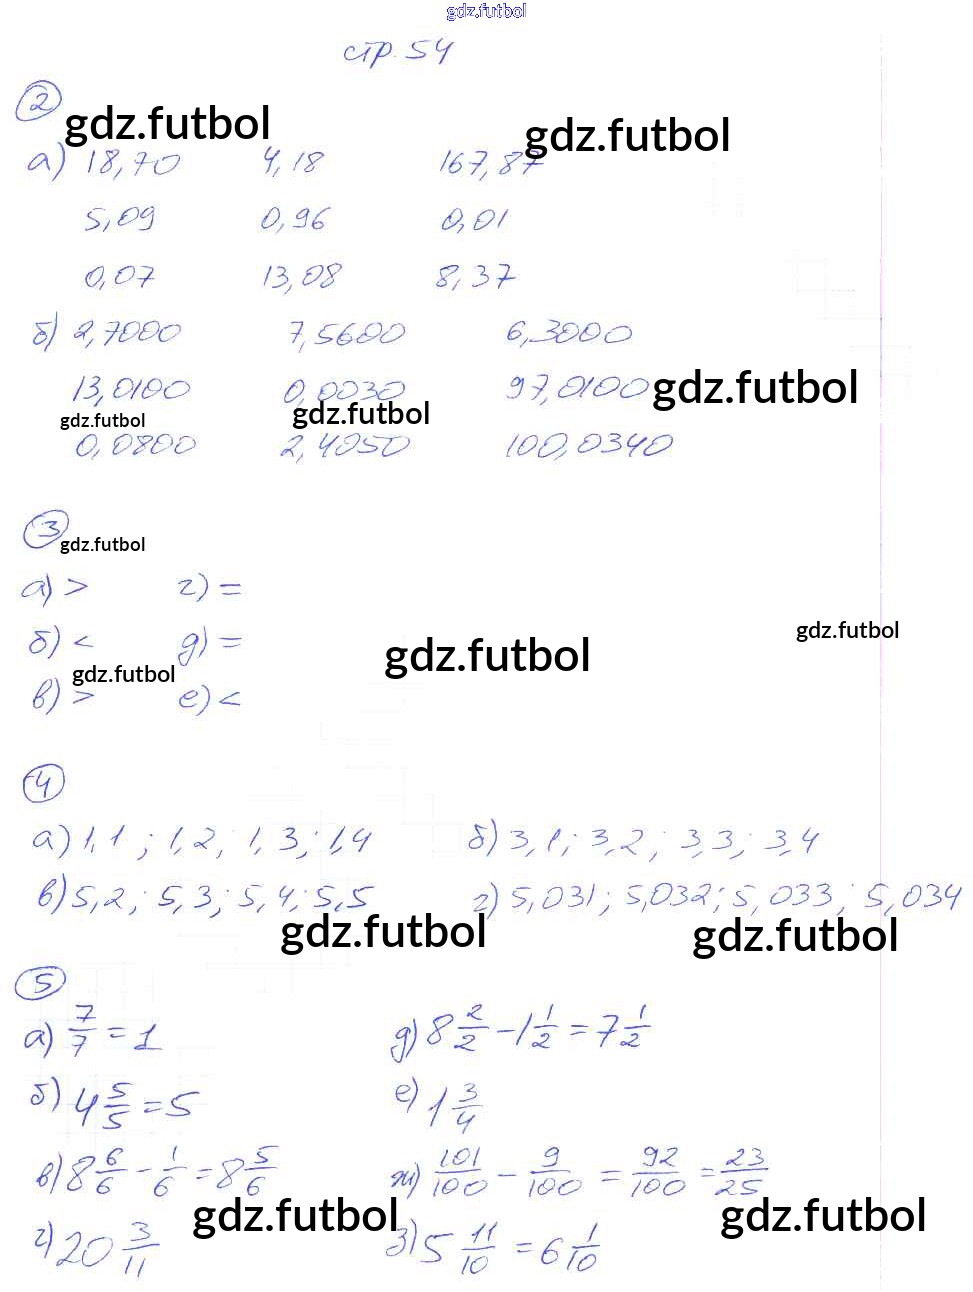 gdz.futbol
стр. 54
2
gdz.futbol
gdz.futbol
а) 18,70 4,18 167,87
5,09 0,96 0,01
0,07 13,08 8,37
б) 2,7000 7,5600 6,3000
13,0100 0,0030 97,0100
gdz.futbol
gdz.futbol gdz.futbol
0,0800 2,4050 100,0340
3
gdz.futbol
а) > г) =
б) < д) =
gdz.futbol gdz.futbol gdz.futbol
в) > е) <
4
а) 1,1; 1,2; 1,3; 1,4 б) 3,1; 3,2; 3,3; 3,4
в) 5,2; 5,3; 5,4; 5,5 г) 5,031; 5,032; 5,033; 5,034
gdz.futbol gdz.futbol
5
а) 7/7 = 1 д) 8 2/2 - 1 1/2 = 7 1/2
б) 4 5/5 = 5 е) 1 3/4
в) 8 6/6 - 1/6 = 8 5/6 ж) 101/100 - 9/100 = 92/100 = 23/25
gdz.futbol gdz.futbol
г) 20 3/11 з) 5 11/10 = 6 1/10